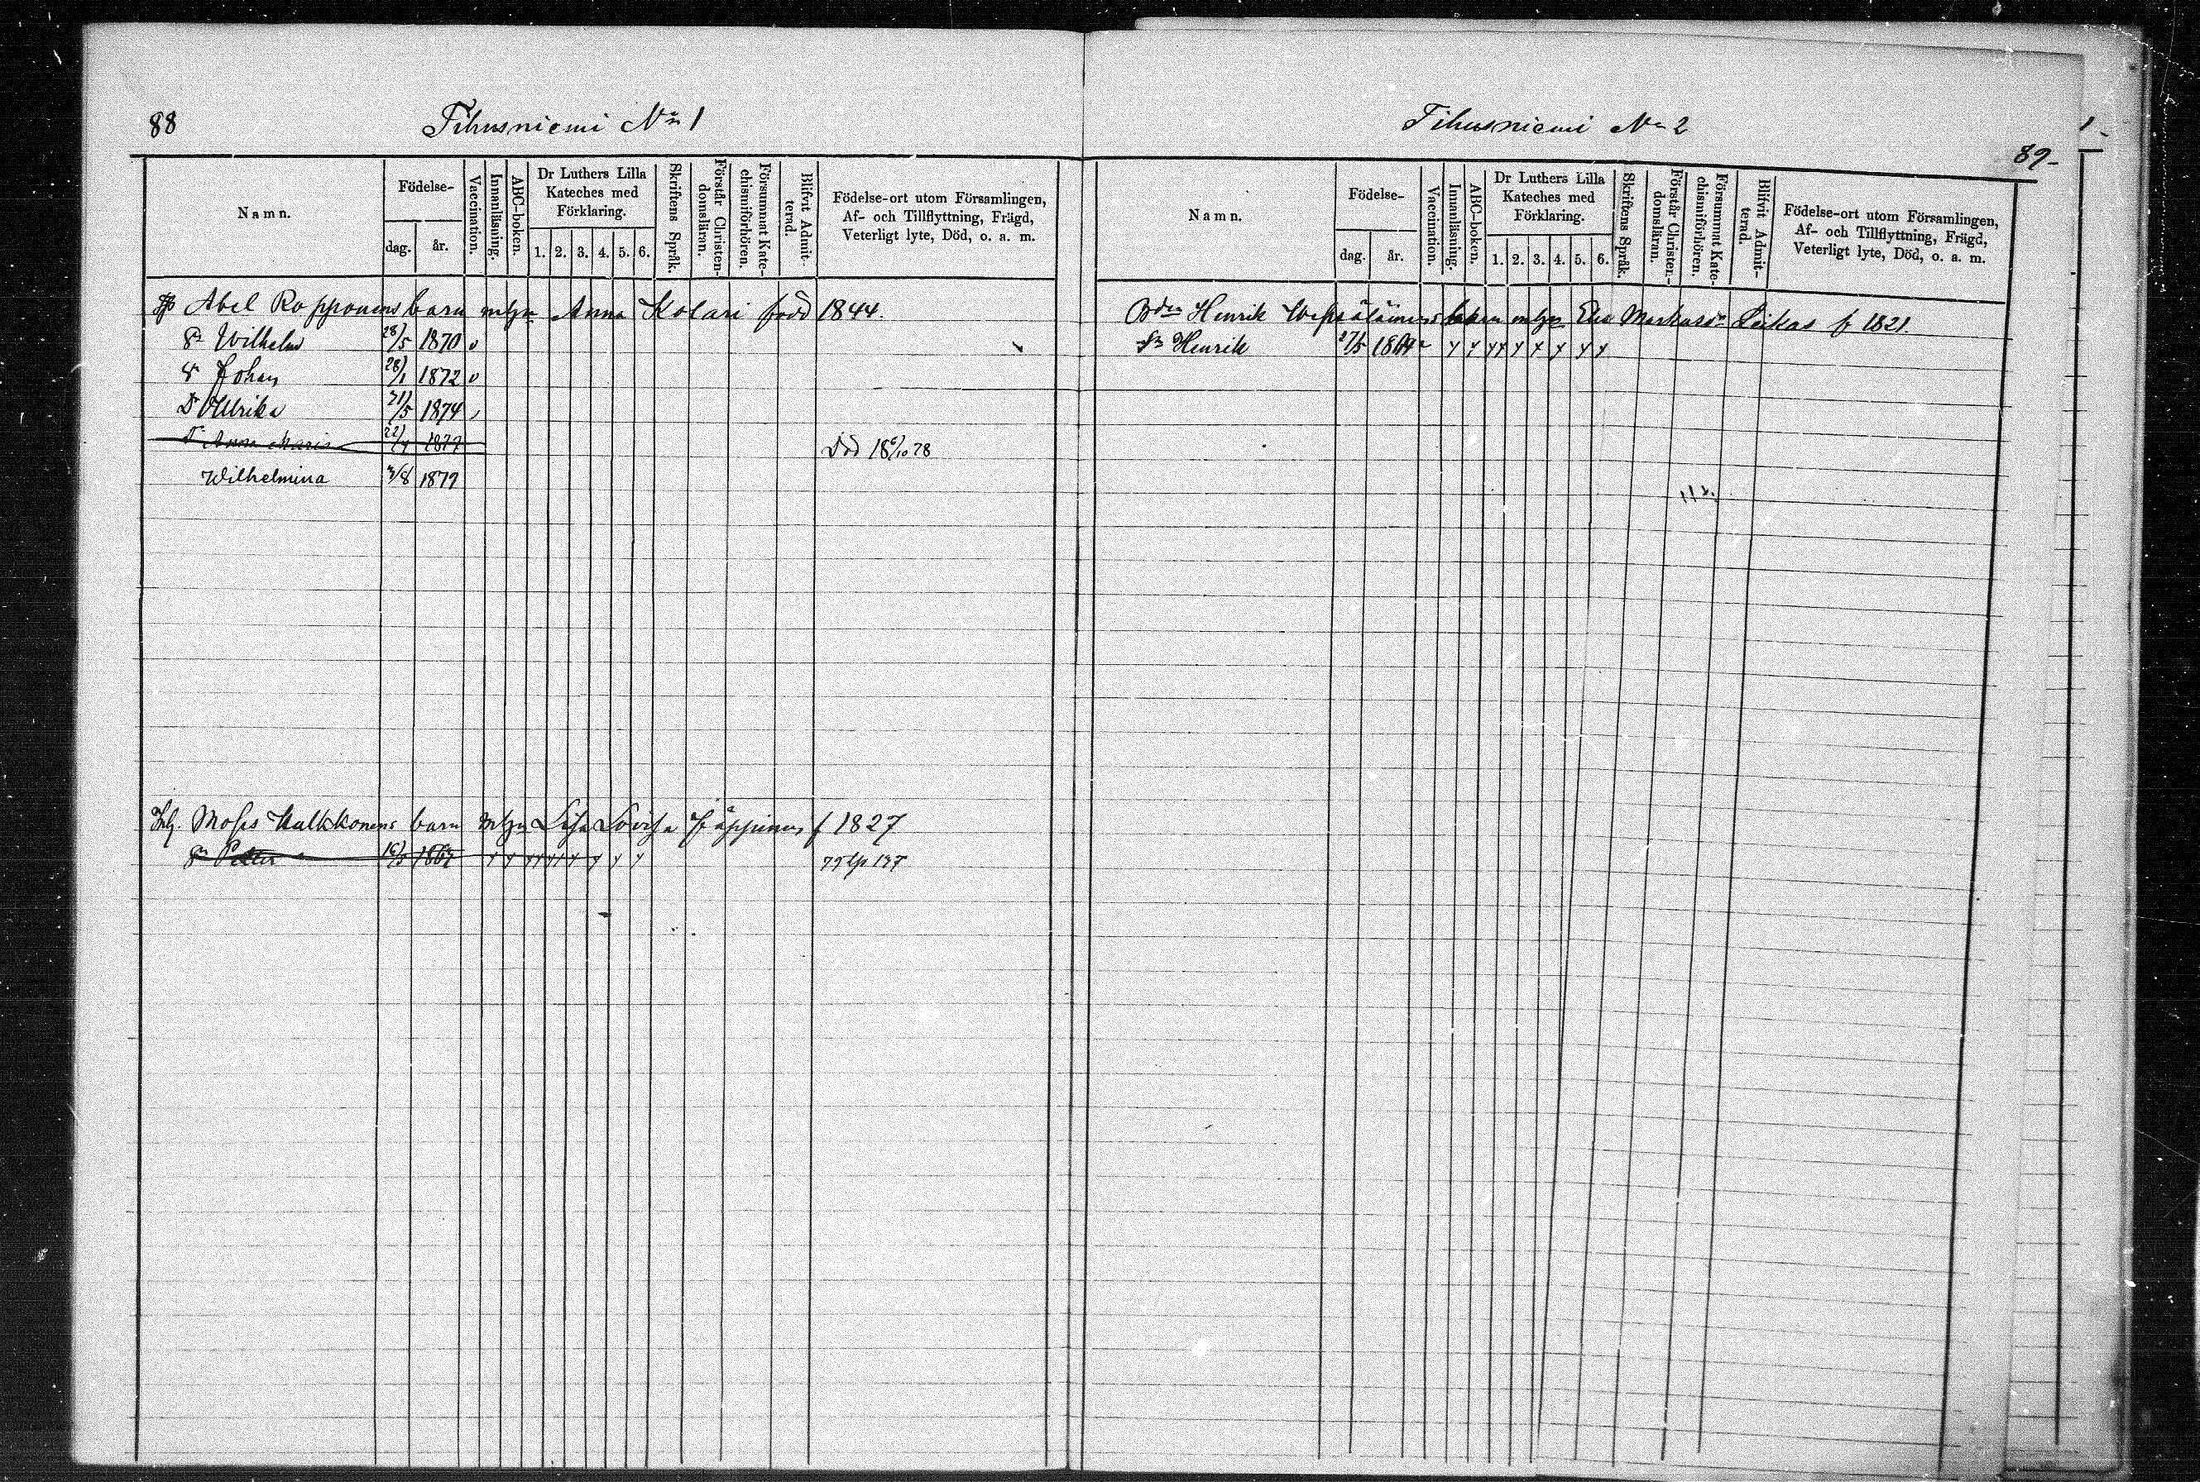 88
Tihusniemi No 1
Namn.
Födelse-
dag.
år.
Vaccination.
Innanläsning.
ABC-boken.
Dr Luthers Lilla
Kateches med
Förklaring.
1. 2. 3. 4. 5. 6.
Skriftens Språk.
Förstår Christen-
domsläran.
Försummat Kate-
chismiförhören.
Blifvit Admit-
terad.
Födelse-ort utom Församlingen,
Af- och Tillflyttning, Frägd,
Veterligt lyte, Död, o. a. m.
Abel Ropponens barn m Anna Kolari född 1844.
Wilhelm 28/5 1870 v
Johan 28/1 1872 v
Dr Ulrika 21/5 1874
Anna Maria 22/4 1877 Död 18 6/10 78
Wilhelmina 3/8 1879
Moses Kalkkonens barn Lisa Lovisa f 1827
Petter 1867
Tihusniemi No 2
89
Namn.
Födelse-
dag.
år.
Vaccination.
Innanläsning.
ABC-boken.
Dr Luthers Lilla
Kateches med
Förklaring.
1. 2. 3. 4. 5. 6.
Skriftens Språk.
Förstår Christen-
domsläran.
Försummat Kate-
chismiförhören.
Blifvit Admit-
terad.
Födelse-ort utom Församlingen,
Af- och Tillflyttning, Frägd,
Veterligt lyte, Död, o. a. m.
Henrik Wepsäläinens barn Eva Leikas f 1821.
Henrik 27/5 1864